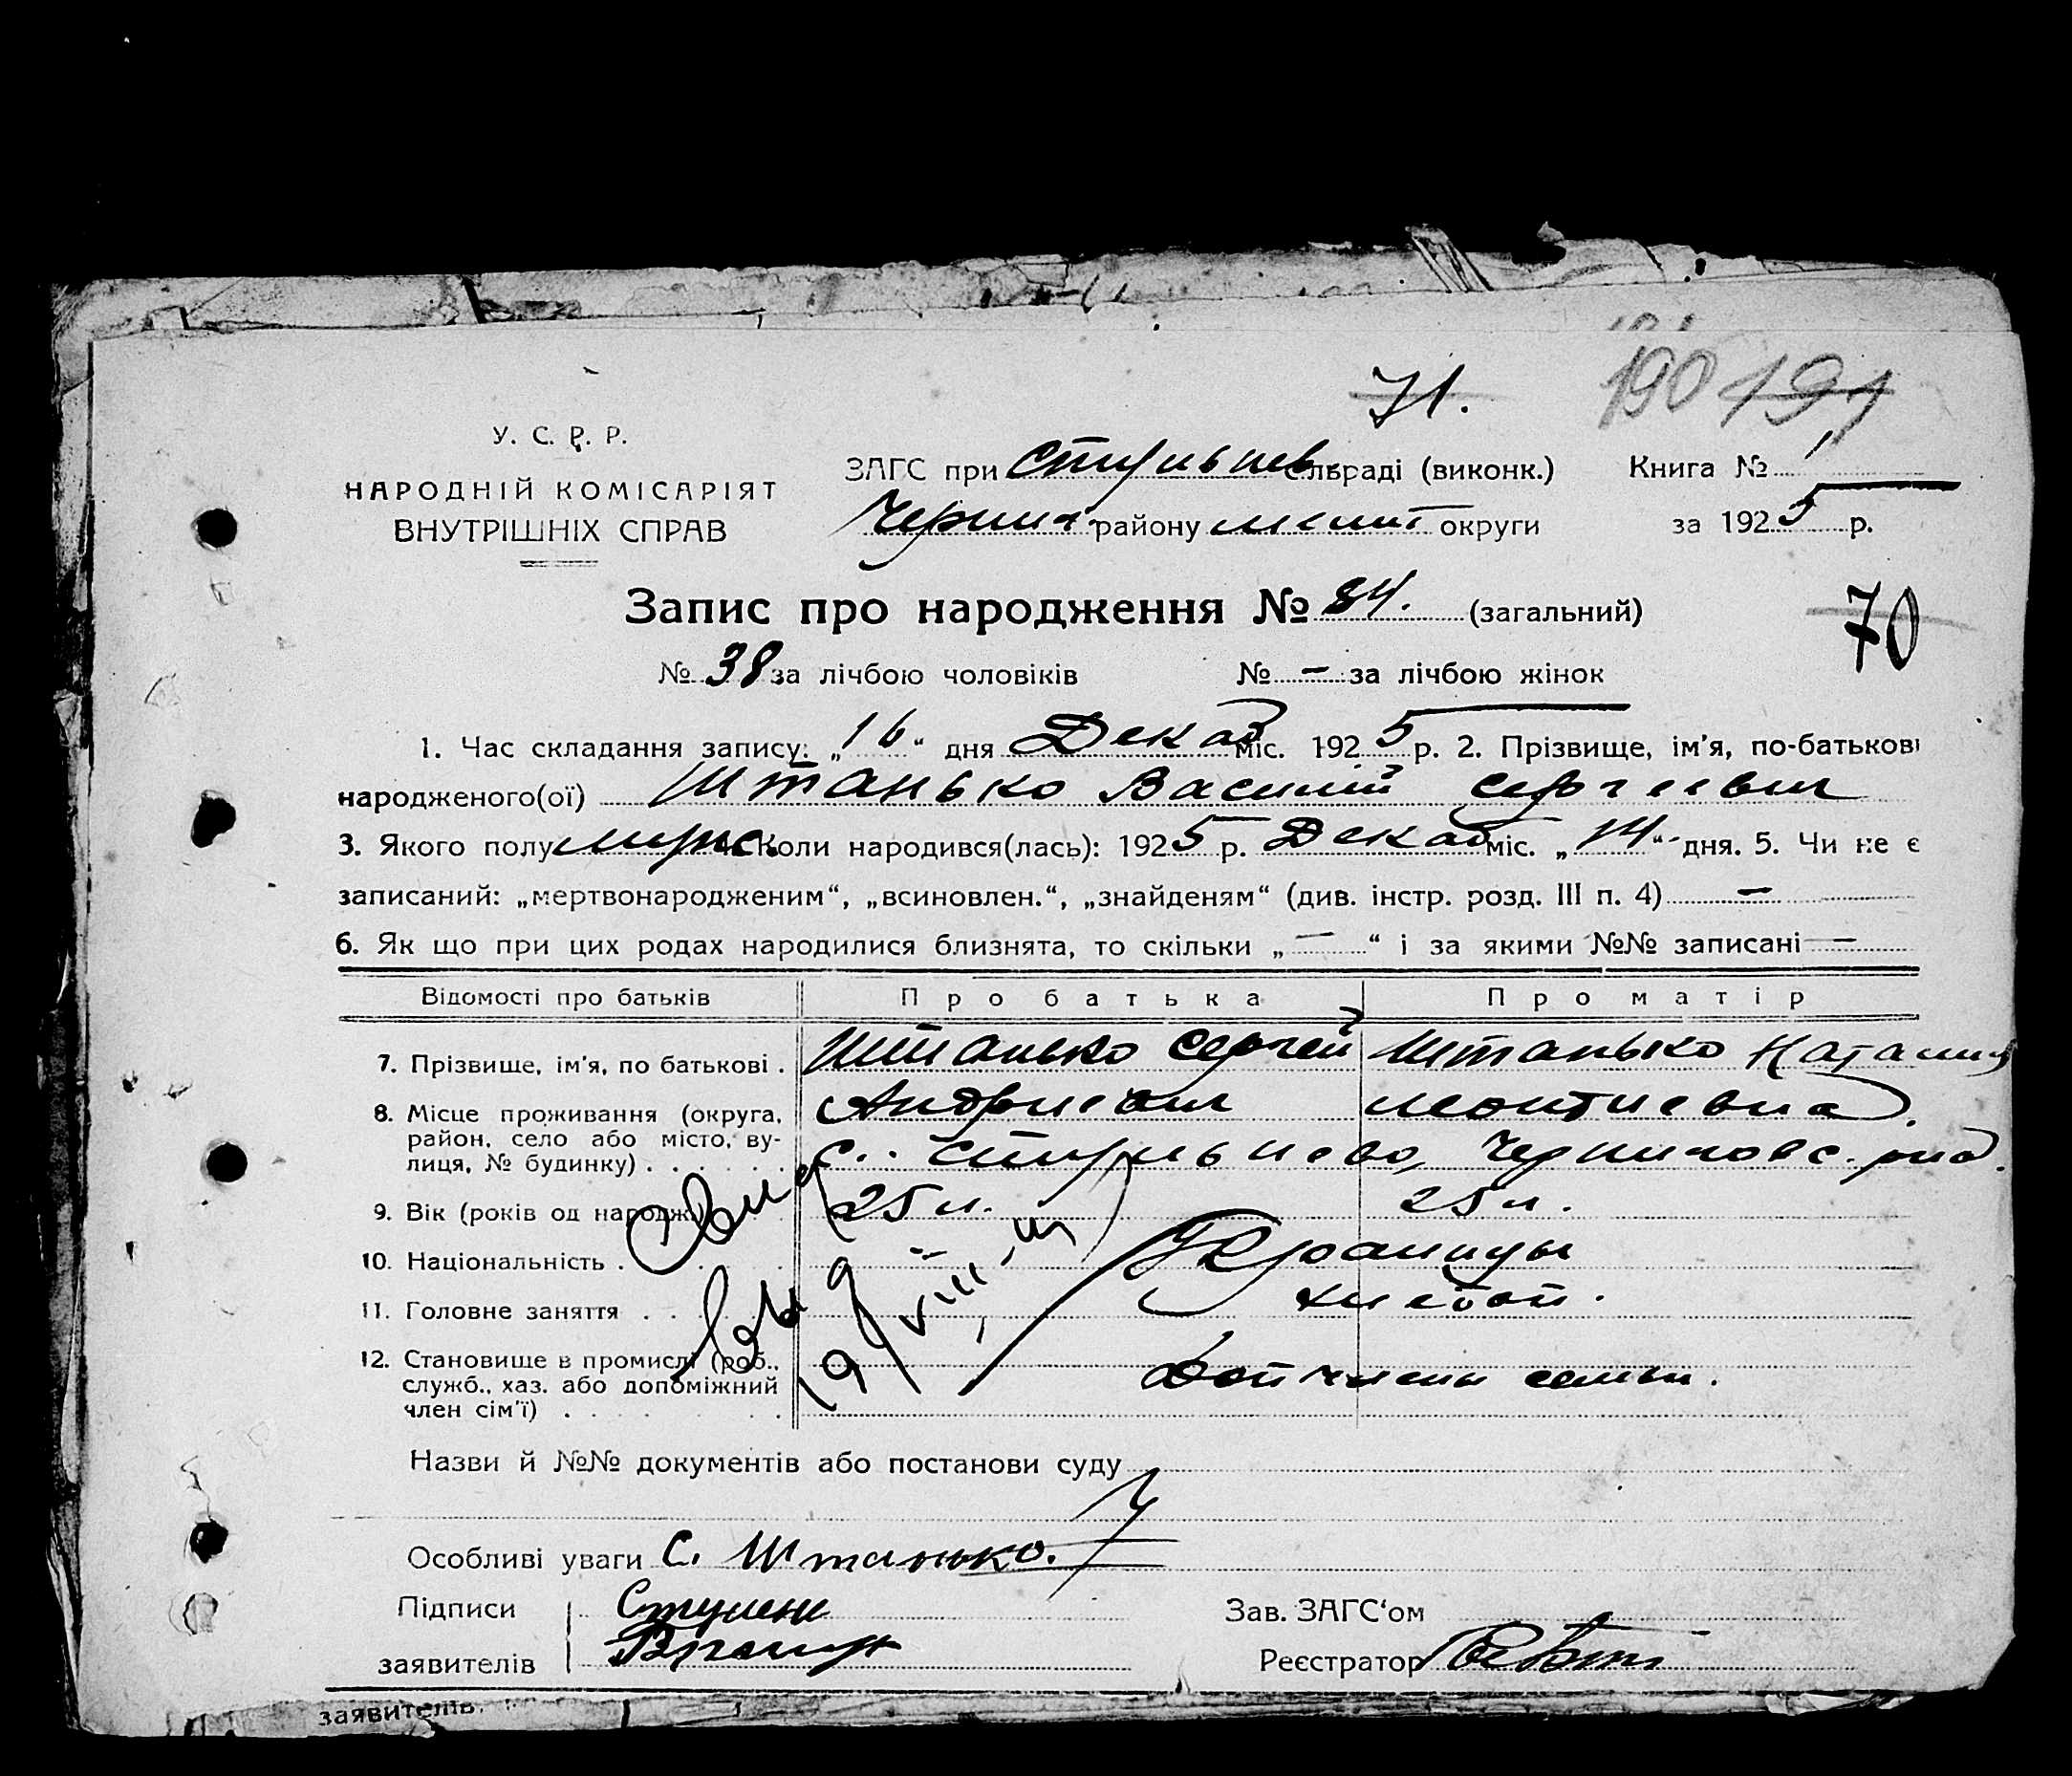 71.
190 191
У. С. Р. Р.
НАРОДНІЙ КОМІСАРІЯТ
ВНУТРІШНІХ СПРАВ
ЗАГС при сільраді (виконк.) Книга № 1
району округи за 1925 р.
Запис про народження № 84. (загальний)
70
№ 38 за лічбою чоловіків № — за лічбою жінок
1. Час складання запису: „16“ дня Декаб міс. 1925 р. 2. Прізвище, ім'я, по-батькові
народженого(ої) Штанько Василий Сергеевич
3. Якого полу мужс. 4. Коли народився(лась): 1925 р. Декаб міс. „14“ дня. 5. Чи не є
записаний: „мертвонародженим“, „всиновлен.“, „знайденям“ (див. інстр. розд. III п. 4) —
6. Як що при цих родах народилися близнята, то скільки „—“ і за якими №№ записані —
Відомості про батьків Про батька Про матір
7. Прізвище, ім'я, по батькові . Штанько Сергей Штанько Наталия
Андреевич Леонтиевна
8. Місце проживання (округа,
район, село або місто, ву-
лиця, № будинку) . . . . . . с.
9. Вік (років од народж.) . 25 л. 25 л.
10. Національність . Украинцы
11. Головне заняття . . хлебоп.
12. Становище в промислі (роб.,
служб., хаз. або допоміжний
член сім'ї) . . . . . . члены семьи.
19 VIII
Назви й №№ документів або постанови суду
Особливі уваги С. Штанько.
Підписи
заявителів
Зав. ЗАГС‘ом
Реєстратор
заявителів.